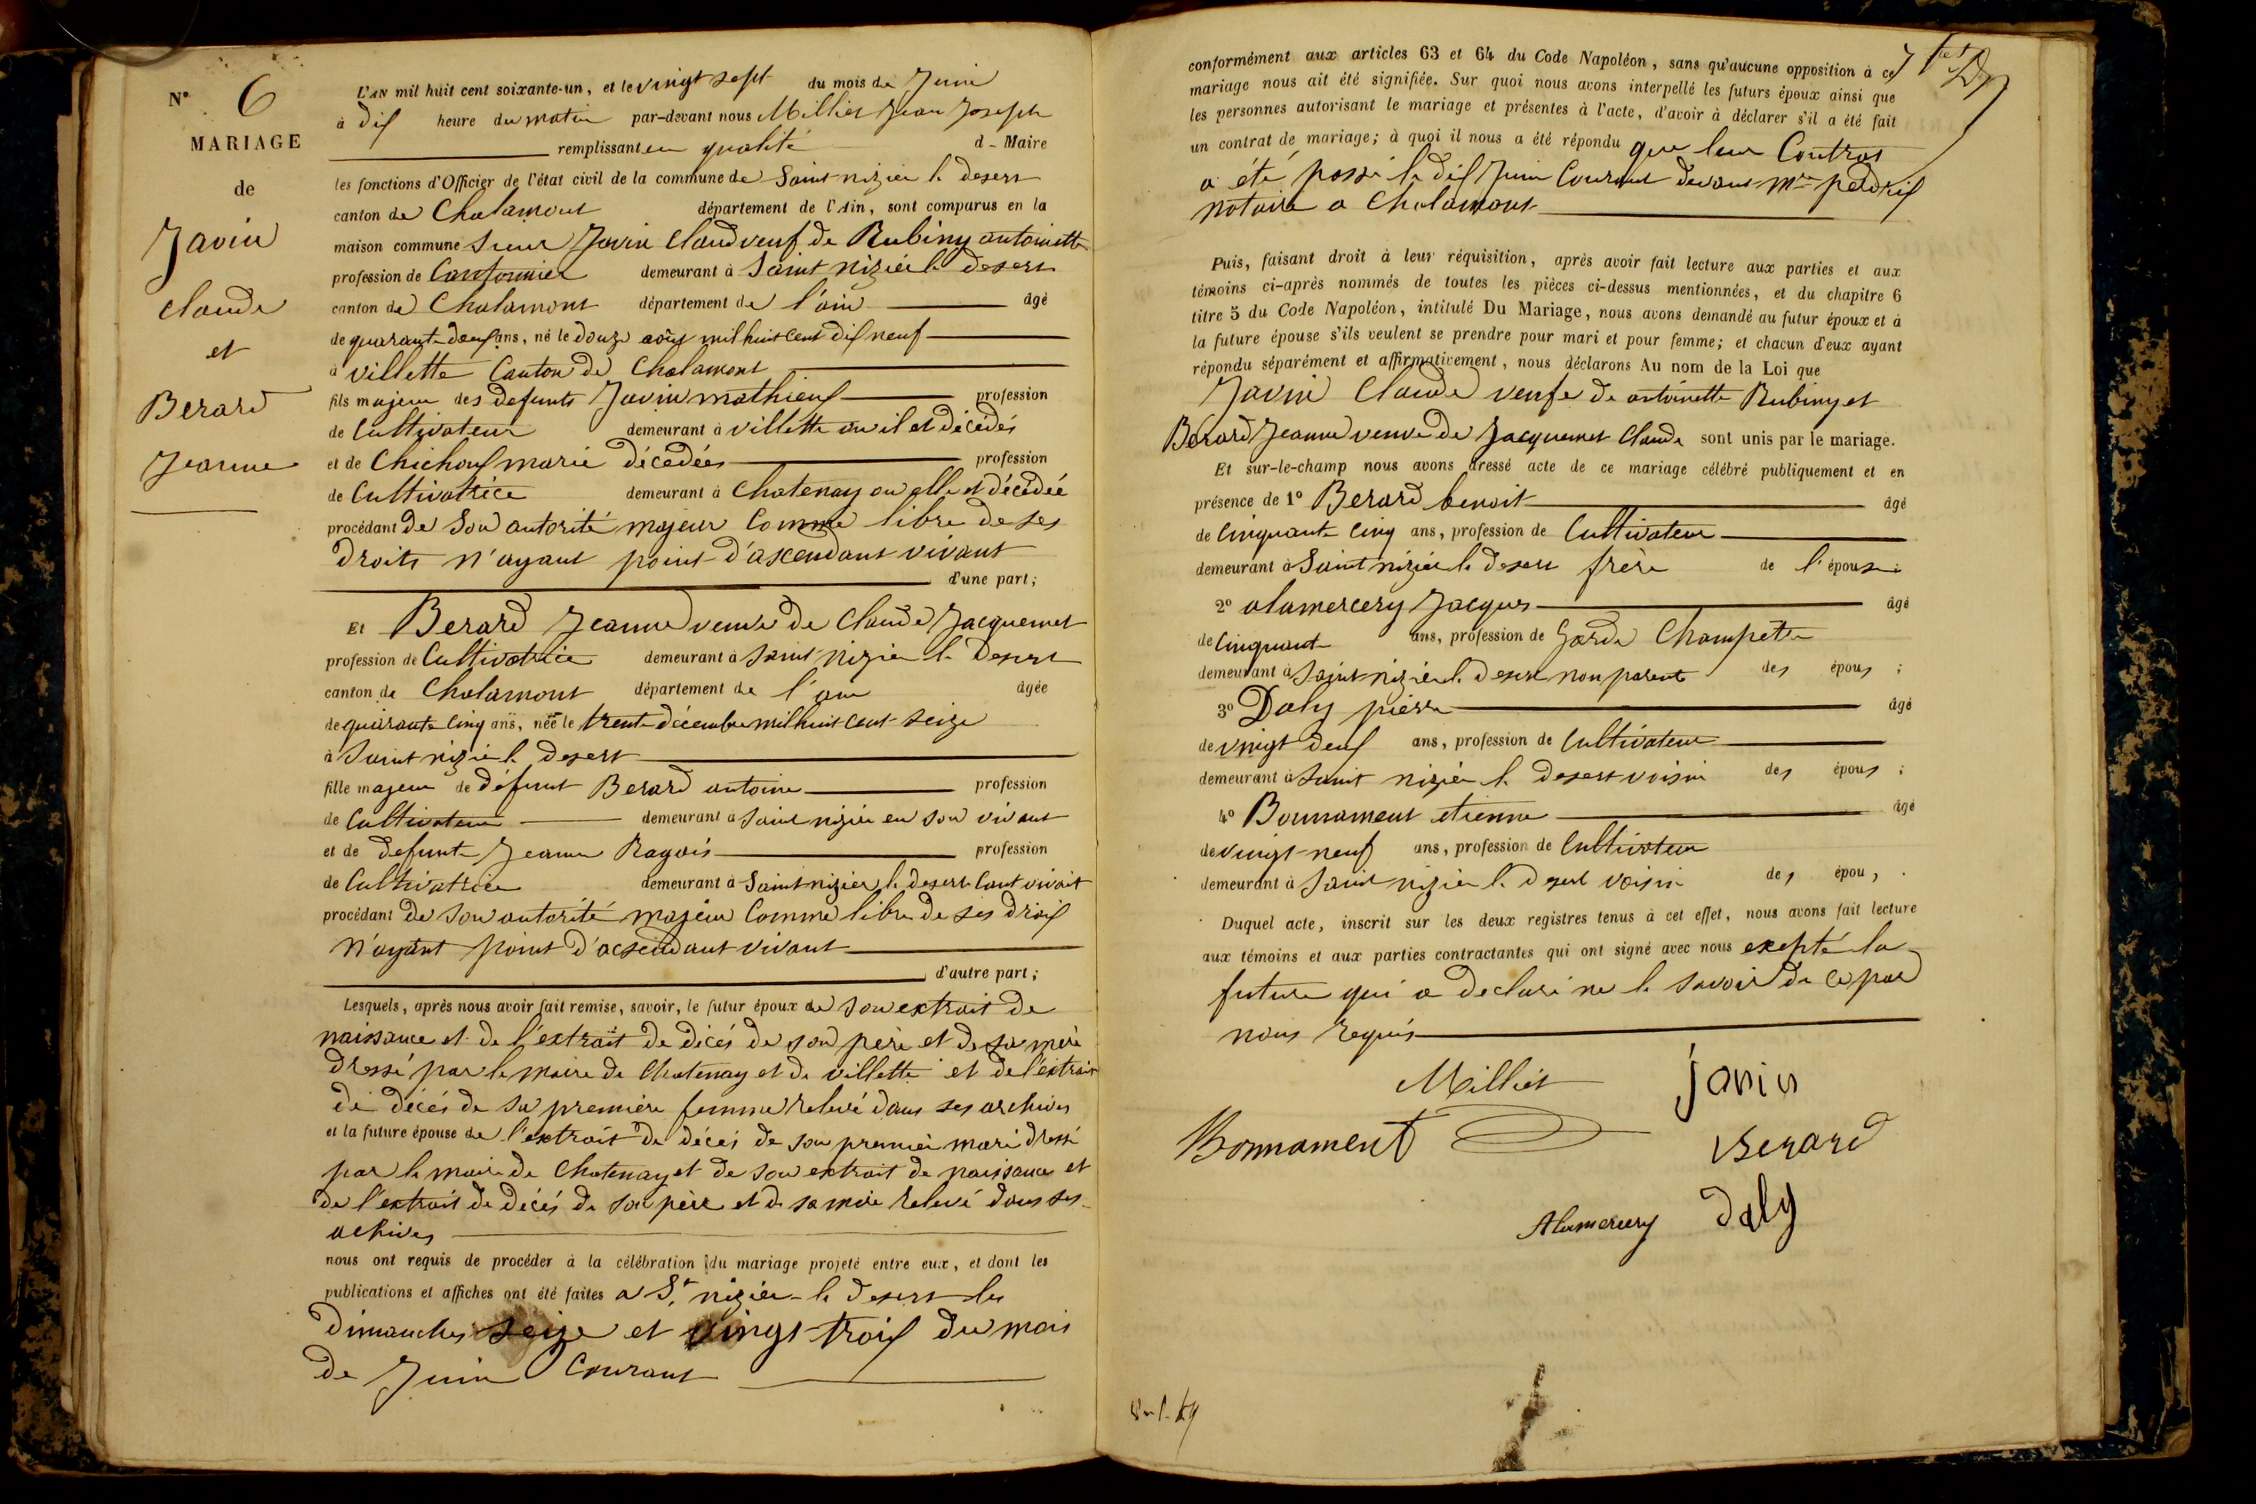 N° 6
MARIAGE
de
Javin
claude
et
Berard
Jeanne
L'AN mil huit cent soixante-un, et le vingt sept du mois de Juin
à dix heure du matin par-devant nous Milliet Jean Joseph
remplissant en qualité d - Maire
les fonctions d'Officier de l'état civil de la commune de Saint nizier le desert
canton de Chalamont département de l'Ain, sont comparus en la
maison commune sieur Javin Claud veuf de Rubiny antoinette
profession de Cantonnier demeurant à Saint Nizier le desert
canton de Chalamont département de l'ain âgé
de quarante deux ans, né le douze août mil huit cent dix neuf
à villette Canton de Chalamont
fils majeur des defunts Javin mathieux profession
de Cultivateur demeurant à villette ou il et décédés
et de Chichoux marie décédées profession
de Cultivatrice demeurant à Chatenay ou elle et décédée
procédant de Son autorité majeur Comme libre de ses
droits n'ayant point d'ascendant vivant
d'une part;
Et Berard Jeanne veuve de Claude Jacquemet
profession de Cultivatrice demeurant à Saint Nizier le Desert
canton de Chalamont département de l'ain âgée
de quarante cinq ans, née le trente décembre mil huit cent seize
à Saint nizier le desert
fille majeur de défunt Berard antoine profession
de Cultivateur demeurant à Saint nizier en son vivant
et de defunte Jeanne Ragois profession
de Cultivatrice demeurant à Saint nizier le desert vivait
procédant de son autorité majeur Comme libre de ses droix
n'ayant point d'acsendant vivant
d'autre part;
Lesquels, après nous avoir fait remise, savoir, le futur époux de son extrait de
naissance et de l'extrait de décés de son père et de sa mère
dressé par le maire de Chatenay et de villette et de l'extrait
de décés de sa première femme relevé dans ses archives
et la future épouse de l'extrait de décés de son premier mari dressé
par le maire de Chatenay et de son extrait de naissance et
de l'extrait de décés de son père et de sa mère relevé dans ses
achives
nous ont requis de procéder à la célébration du mariage projeté entre eux, et dont les
publications et affiches ont été faites a St nizier le desert les
dimanches seize et vingt trois du mois
de Juin Courant
conformément aux articles 63 et 64 du Code Napoléon, sans qu'aucune opposition à ce
mariage nous ait été signifiée. Sur quoi nous avons interpellé les futurs époux ainsi que
les personnes autorisant le mariage et présentes à l'acte, d'avoir à déclarer s'il a été fait
un contrat de mariage; à quoi il nous a été répondu que leur Contrat
a été passé le dix Juin Courant devant Mre perdrix
notaire a Chalamont
Puis, faisant droit à leur réquisition, après avoir fait lecture aux parties et aux
témoins ci-après nommés de toutes les pièces ci-dessus mentionnées, et du chapitre 6
titre 5 du Code Napoléon, intitulé Du Mariage, nous avons demandé au futur époux et à
la future épouse s'ils veulent se prendre pour mari et pour femme; et chacun d'eux ayant
répondu séparément et affirmativement, nous déclarons Au nom de la Loi que
Javin Claude veufe de antoinette Rubiny et
Berard Jeanne veuve de Jacquemet Claude sont unis par le mariage.
Et sur-le-champ nous avons dressé acte de ce mariage célébré publiquement et en
présence de 1° Berard benoit âgé
de Cinquante Cinq ans, profession de Cultivateur
demeurant à Saint nizier le desert frère de l'épouse;
2° alamercery Jacques âgé
de Cinquante ans, profession de Garde Champetre
demeurant à Saint nizier le desert non parent des époux;
3° Daly pierre âgé
de vingt deux ans, profession de Cultivateur
demeurant à Saint nizier le desert voisin des époux;
4° Bonnament etienne âgé
de vingt-neuf ans, profession de Cultivateur
demeurant à Saint nizier le desert voisin des époux.
Duquel acte, inscrit sur les deux registres tenus à cet effet, nous avons fait lecture
aux témoins et aux parties contractantes qui ont signé avec nous exepté la
future qui a declaré ne le savoir de ce par
nous requis
Milliet
Javin
Bonnament
Berard
Alamercery
Daly